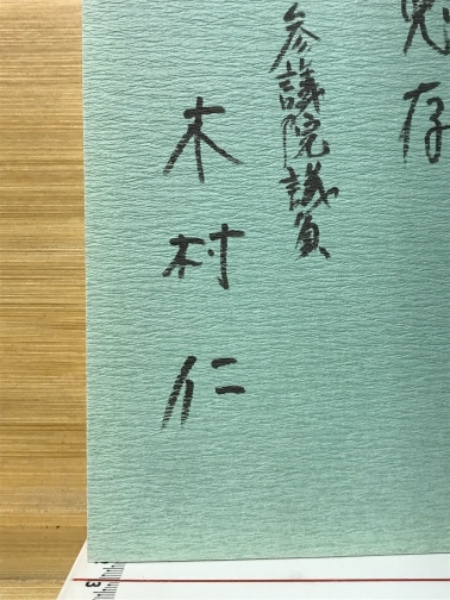 恵存
参議院議員
木村仁
3